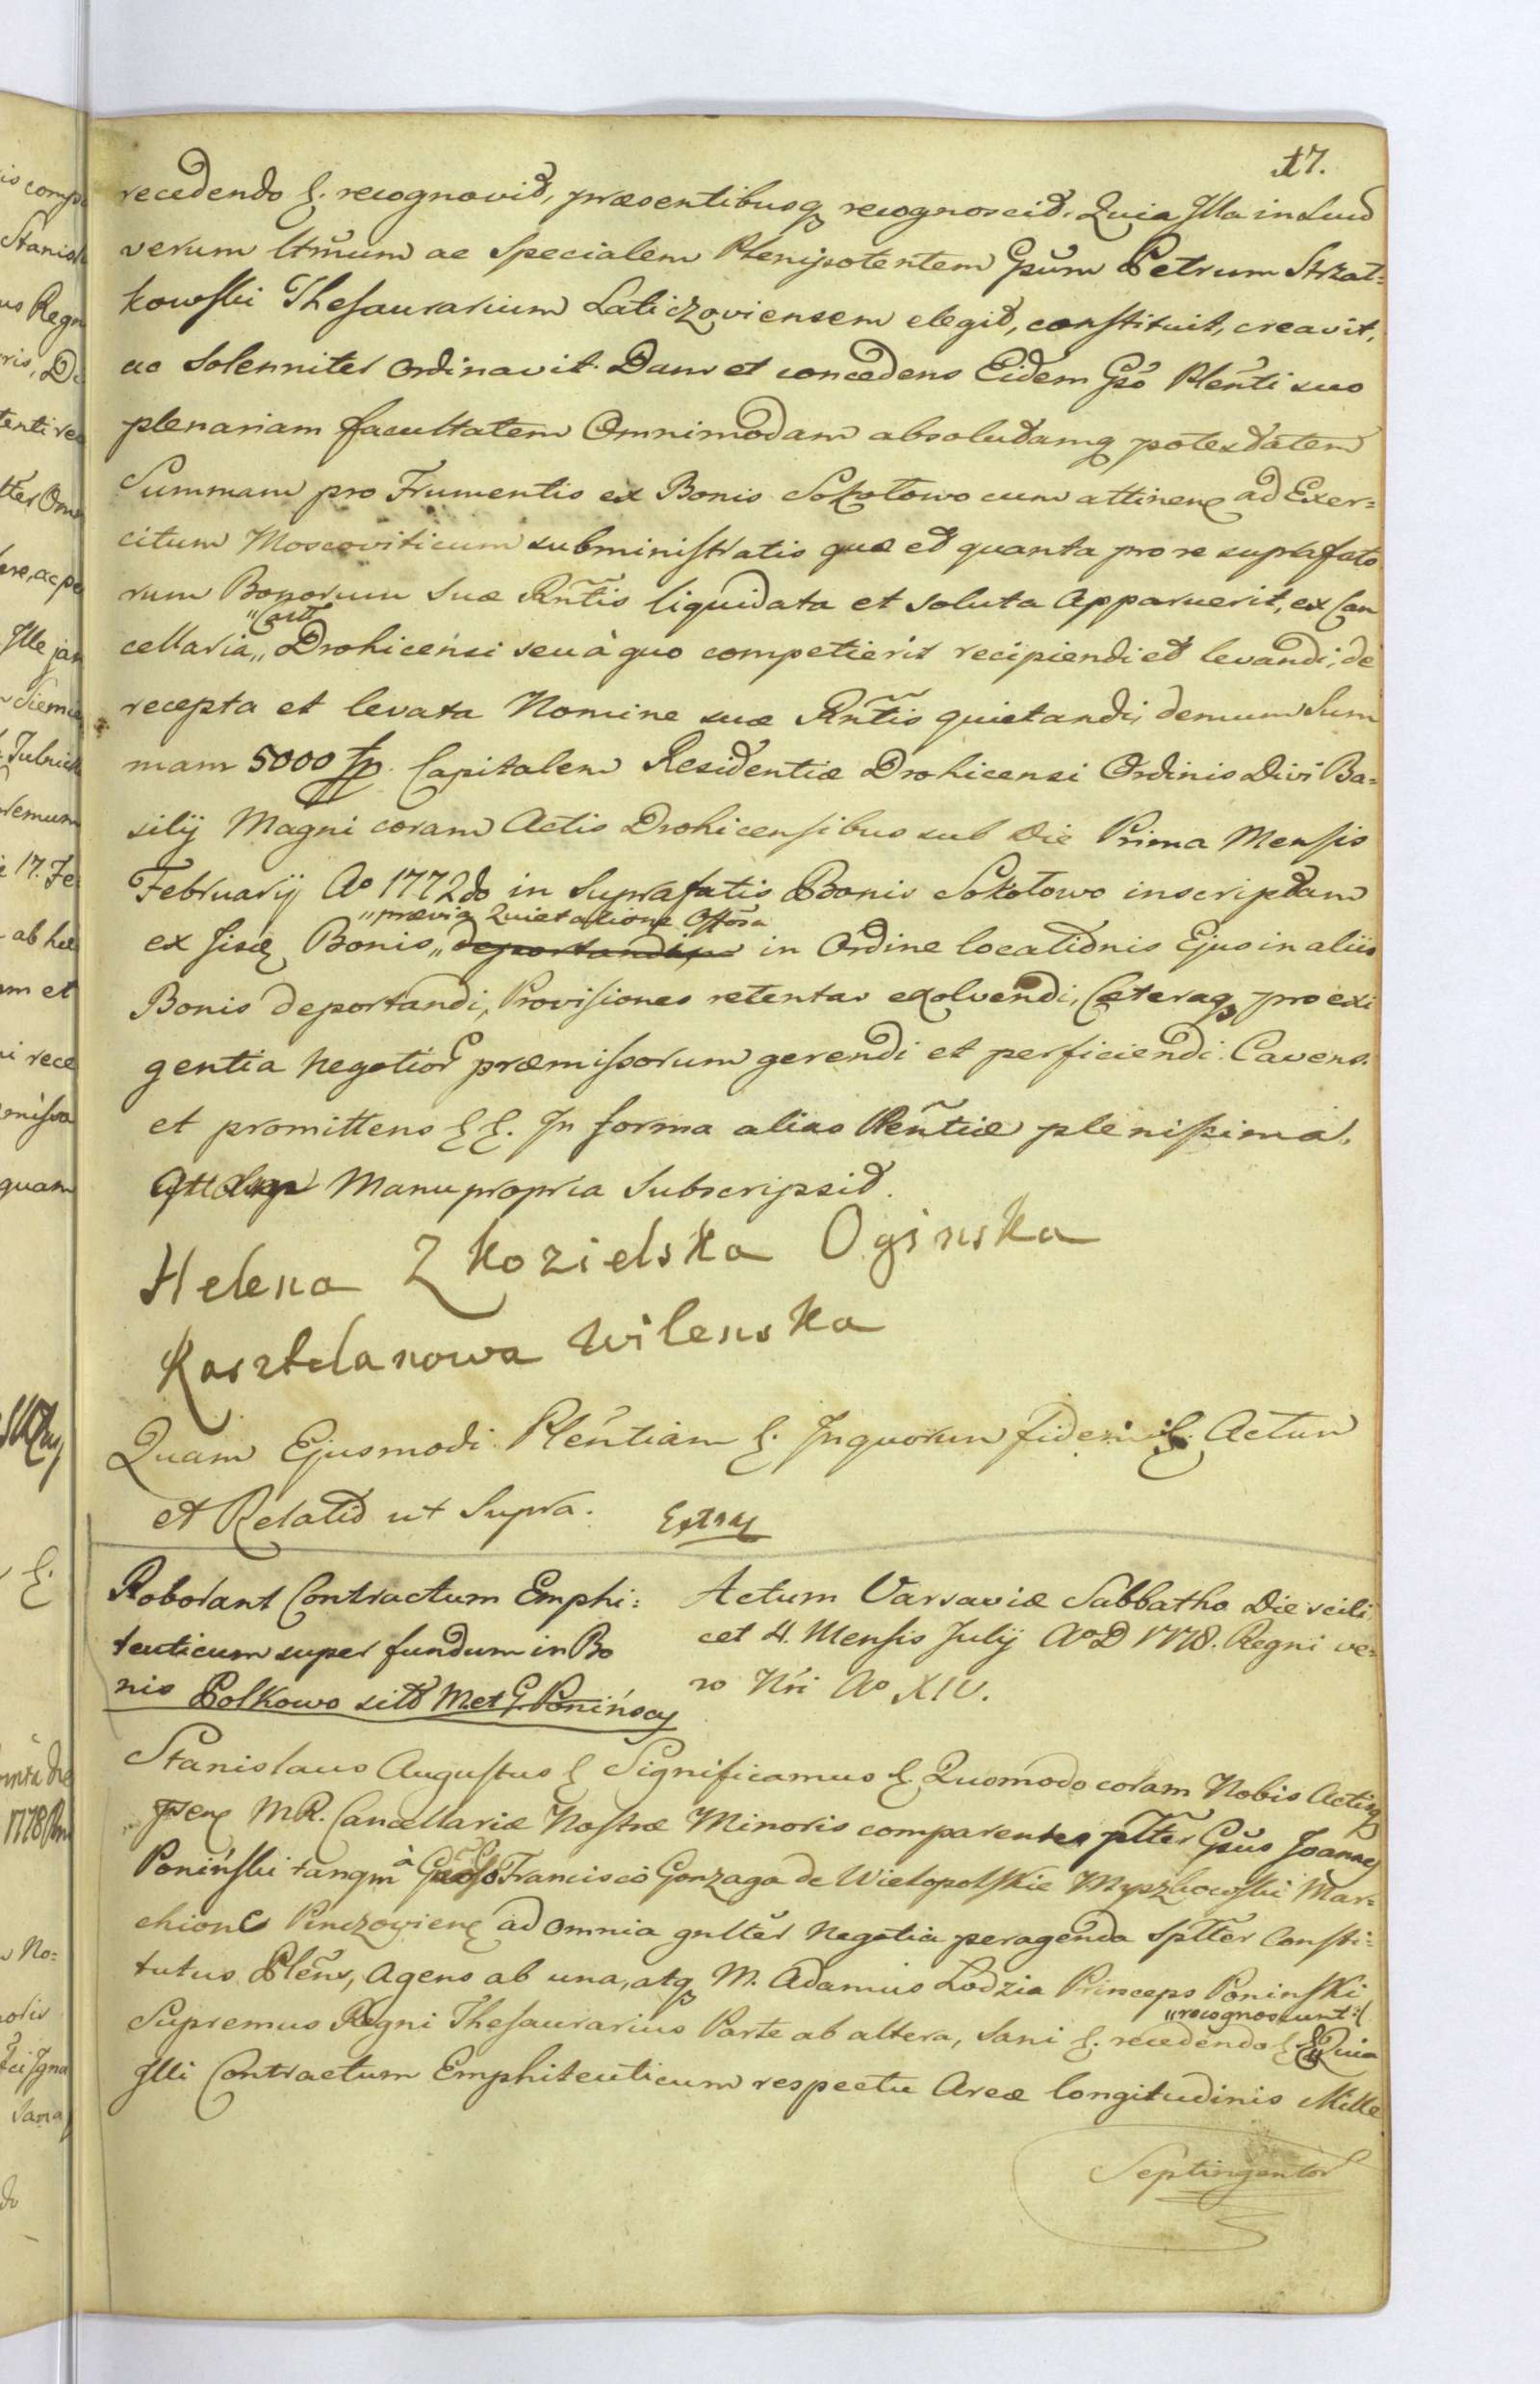 17.
recedendo &. recognovit, præsentibusq recognoscit. Quia Illa in suũ
verum ltmum ac Specialem Plenipotentem Gsum Petrum Strzał=
kowski Thesaurarium Laticzoviensem elegit, constituit, creavit,
ac Solenniter Ordinavit. Dans et concedens Eidem Gso Plenti suo
plenariam facultatem Omnimodam absolutamq potestatem
Summam pro Frumentis ex Bonis Sokołowo cum attinen ad Exer=
citum Moscoviticum subministratis quæ et quanta pro re suprafato
rum Bonorum suæ Rntis liquidata et soluta Apparuerit, ex Can
cellaria „Castr Drohicensi seu à quo competierit recipiendi et levandi, de
recepta et levata Nomine suæ Rntis quietandi, demum Sum
mam 5000 fp. Capitalem Residentiæ Drohicensi Ordinis Divi Ba=
silij Magni coram Actis Drohicensibus sub Die Prima Mensis
Februarij Ao 1772do in Suprafatis Bonis Sokołowo inscriptam
„prævia Quietatione Offõsa
ex iisd Bonis „deportandi in Ordine locationis Ejus in aliis
Bonis deportandi, Provisiones retentas exolvendi, Cæteraq pro exi
gentia Negotior præmissorum gerendi et perficiendi. Cavens.
et promittens & &. In forma alias Plentiæ plenissima.
Manu propria Subscripsit.
Helena Z Kozielska Oginska
Kasztelanowa Wilenska
Quam Ejusmodi Plentiam &. In quorum fidem &. Actum
et Relatio ut Supra. Extrad
Roborant Contractum Emphi=
teuticum super fundum in Bo
nis Polkowo sitõ M. et G. Ponińscy
Actum Varsaviæ Sabbatho Die scili
cet 4. Mensis Julij AoD 1778. Regni ve=
ro Nri Ao XIV.
Stanislaus Augustus & Significamus & Quomodo coram Nobis Actisq
psen MR. Cancellariæ Nostræ Minoris comparentes pltter Gsus Joannes
Poniński tanqm à Francisco Gonzaga de Wielopolskie Myszkowski Mar=
chione Pinczovien ad omnia gnlter Negotia peragenda spltter Consti=
tutus Plens, Agens ab una, atq M. Adamus Lodzia Princeps Poninski
Supremus Regni Thesaurarius Parte ab altera, Sani &. recedendo & „recognoscunt & Quia
Illi Contractum Emphiteuticum respectu Areæ longitudinis Mille
Septingentor